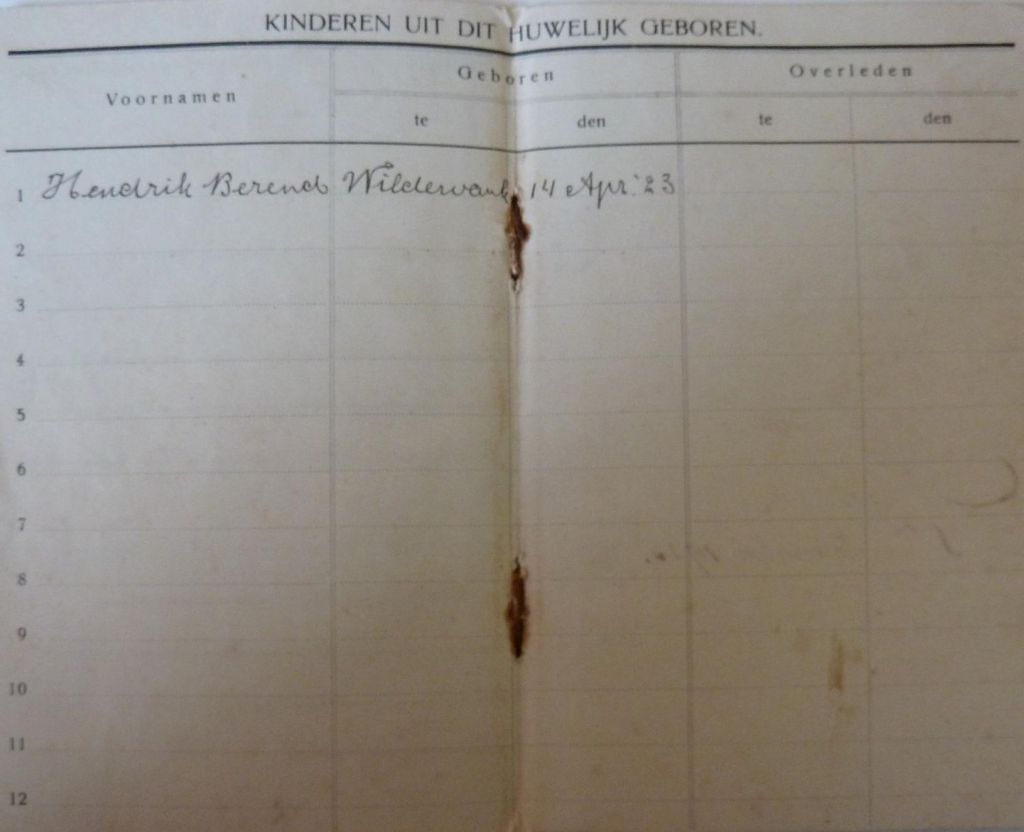 KINDEREN UIT DIT HUWELIJK GEBOREN.
Voornamen Geboren Overleden
te den te den
1 Hendrik Berend Wildervank 14 Apr. '23
2
3
4
5
6
7
8
9
10
11
12